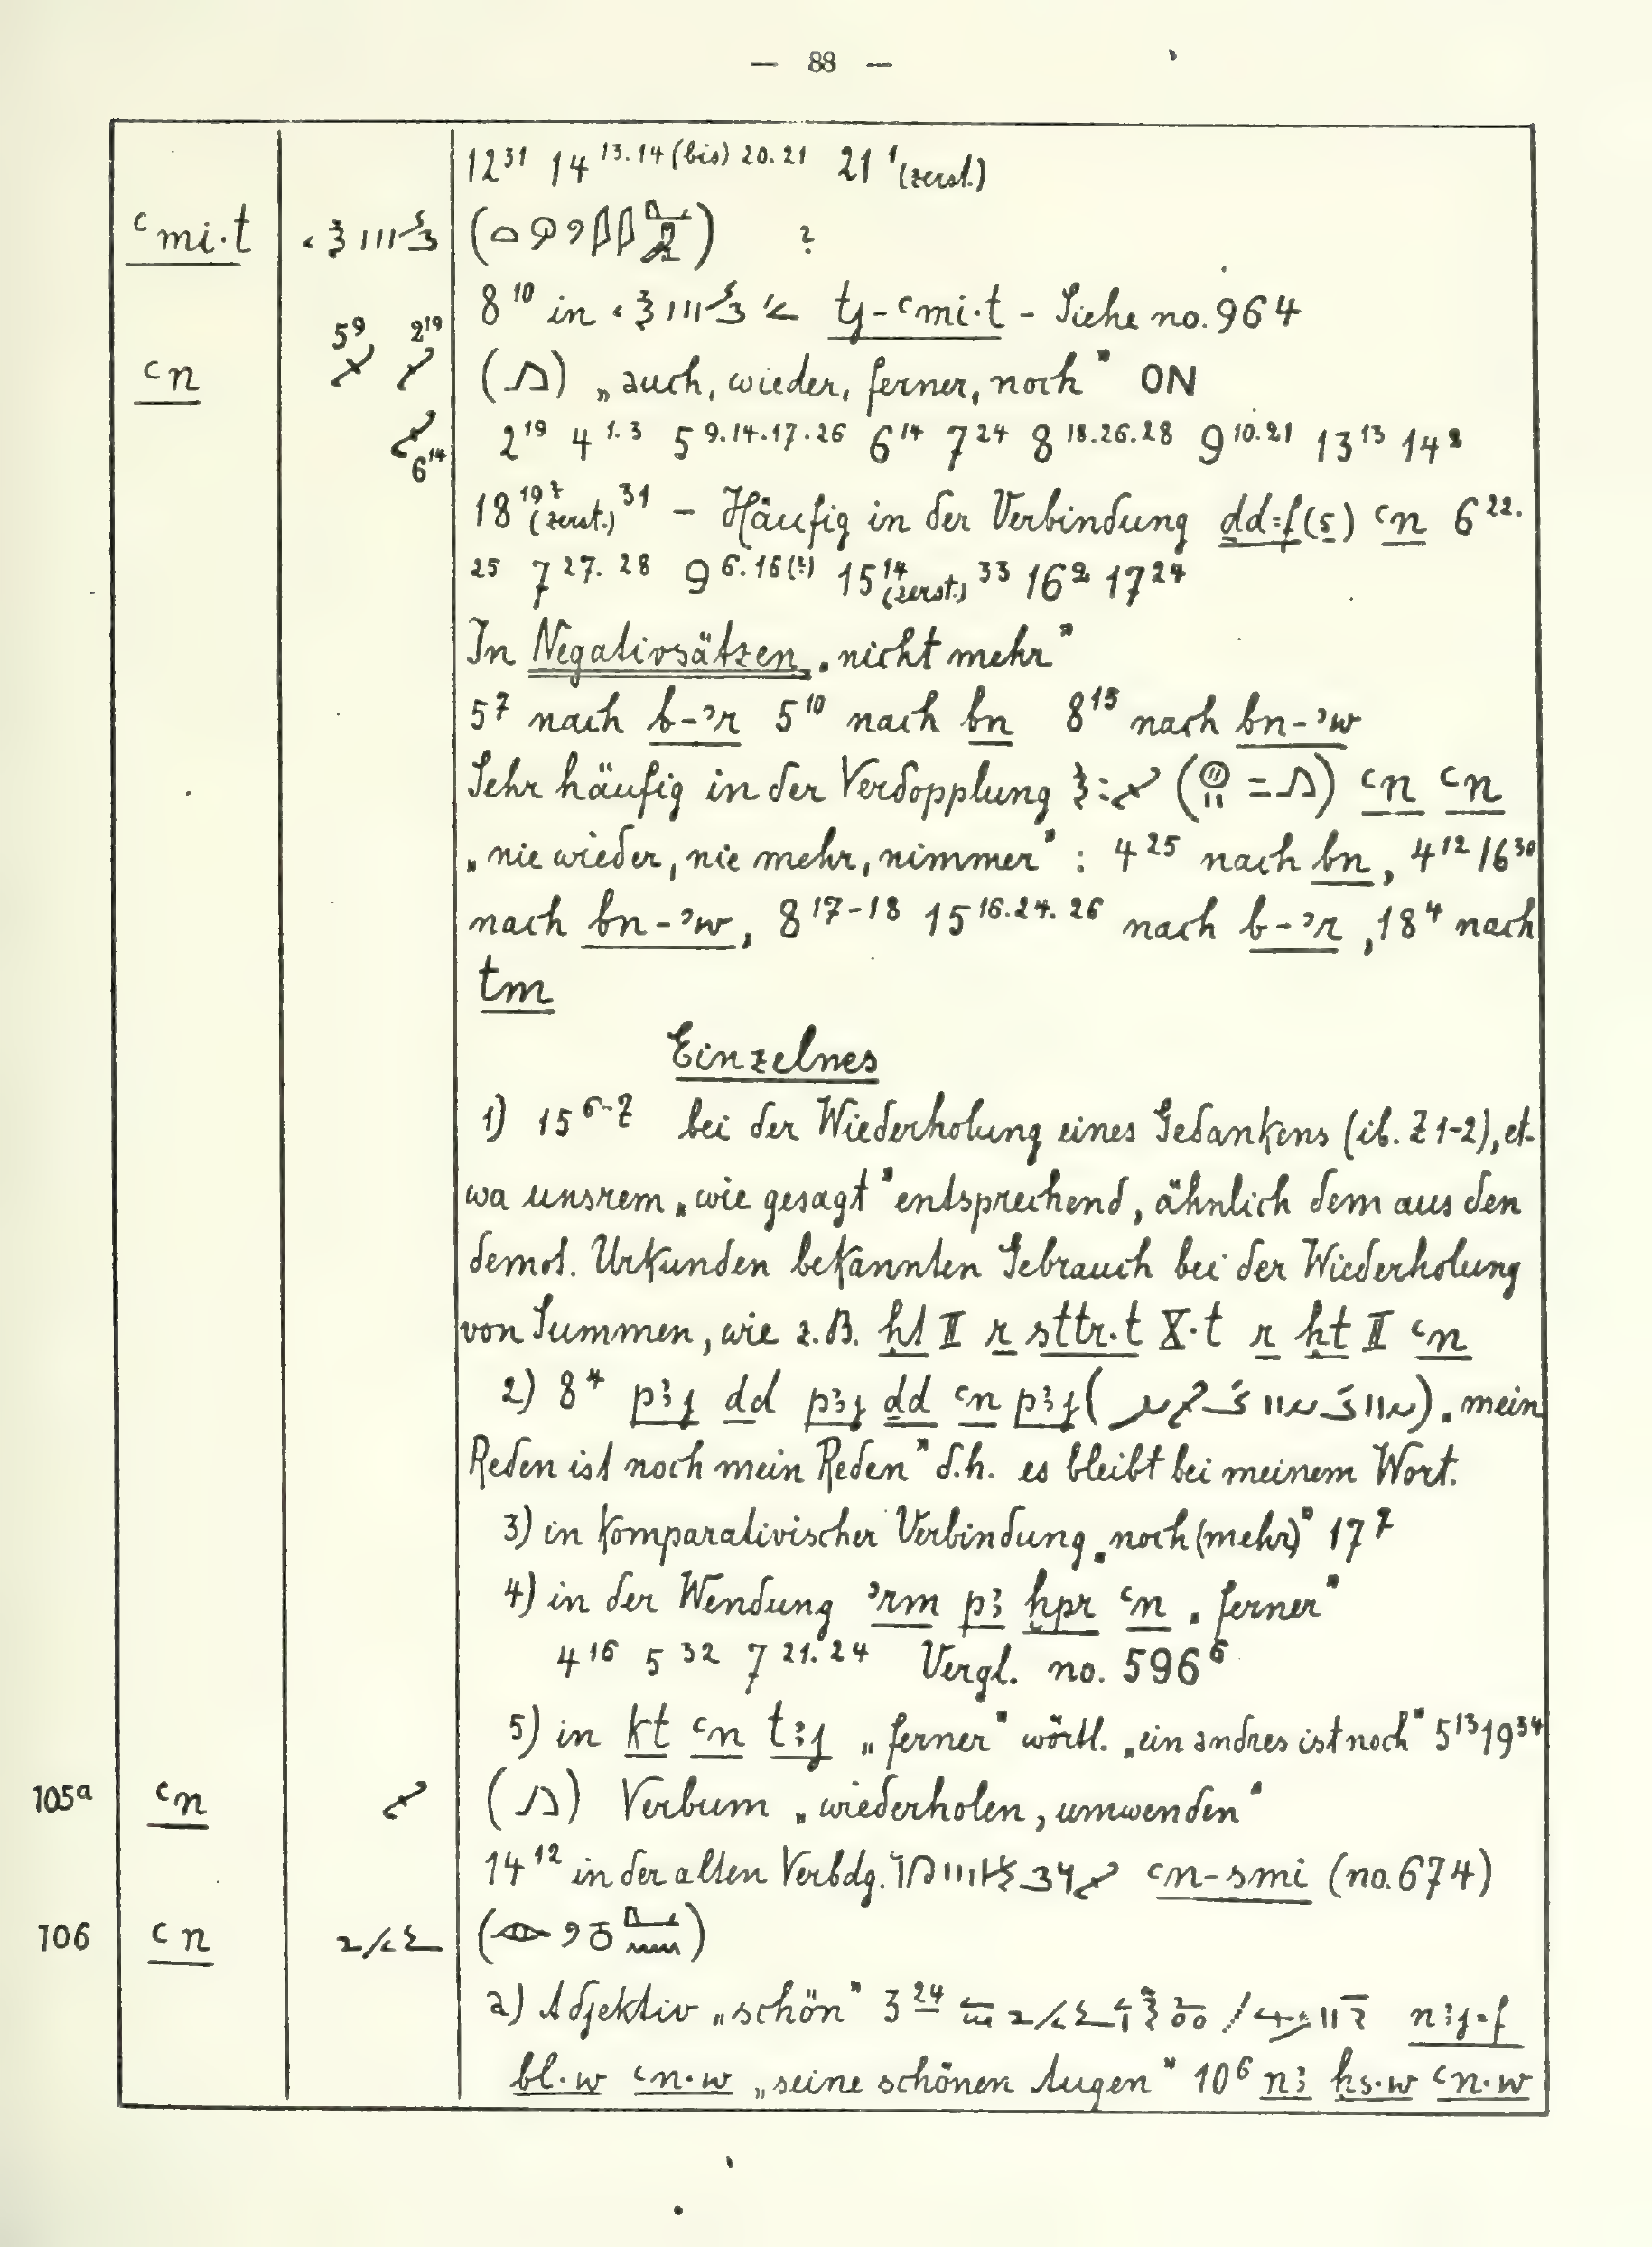 — 88 —
12³¹ 14¹³·¹⁴ ⁽ᵇⁱˢ⁾ ²⁰·²¹ 21¹ (zerst.)
ꜥmi·t ( ) ?
8¹⁰ in tj-ꜥmi·t - Siehe no. 964
5⁹ 2¹⁹
ꜥn ( ) „auch, wieder, ferner, noch" ON
2¹⁹ 4¹·³ 5⁹·¹⁴·¹⁷·²⁶ 6¹⁴ 7²⁴ 8¹⁸·²⁶·²⁸ 9¹⁰·²¹ 13¹³ 14²
6¹⁴
18¹⁹ ᶻ (zerst.) ³¹ - Häufig in der Verbindung ḏd=f(s) ꜥn 6²²·
²⁵ 7²⁷·²⁸ 9⁶·¹⁶⁽?⁾ 15¹⁴ (zerst.) ³³ 16² 17²⁴
In Negativsätzen „nicht mehr"
5⁷ nach b-ꜣr 5¹⁰ nach bn 8¹⁵ nach bn-ꜣw
Sehr häufig in der Verdopplung ( = ) ꜥn ꜥn
„nie wieder, nie mehr, nimmer" : 4²⁵ nach bn, 4¹² 16³⁰
nach bn-ꜣw, 8¹⁷⁻¹⁸ 15¹⁶·²⁴·²⁶ nach b-ꜣr, 18⁴ nach
tm
Einzelnes
1) 15⁶⁻⁷ bei der Wiederholung eines Gedankens (ib. Z 1-2), et-
wa unsrem „wie gesagt" entsprechend, ähnlich dem aus den
demot. Urkunden bekannten Gebrauch bei der Wiederholung
von Summen, wie z.B. ḥt II r sttr·t X·t r ḥt II ꜥn
2) 8⁴ pꜣj ḏd pꜣj ḏd ꜥn pꜣj ( ) „mein
Reden ist noch mein Reden" d.h. es bleibt bei meinem Wort.
3) in komparativischer Verbindung „noch (mehr)" 17⁷
4) in der Wendung ꜣrm pꜣ ḫpr ꜥn „ferner"
4¹⁶ 5³² 7²¹·²⁴ Vergl. no. 596⁶
5) in kt ꜥn tꜣj „ferner" wörtl. „ein andres ist noch" 5¹³ 19³⁴
105ª ꜥn ( ) Verbum „wiederholen, umwenden"
14¹² in der alten Verbdg. ꜥn-smi (no. 674)
106 ꜥn ( )
a) Adjektiv „schön" 3²⁴ nꜣj=f
bl·w ꜥn·w „seine schönen Augen" 10⁶ nꜣ ḥs·w ꜥn·w